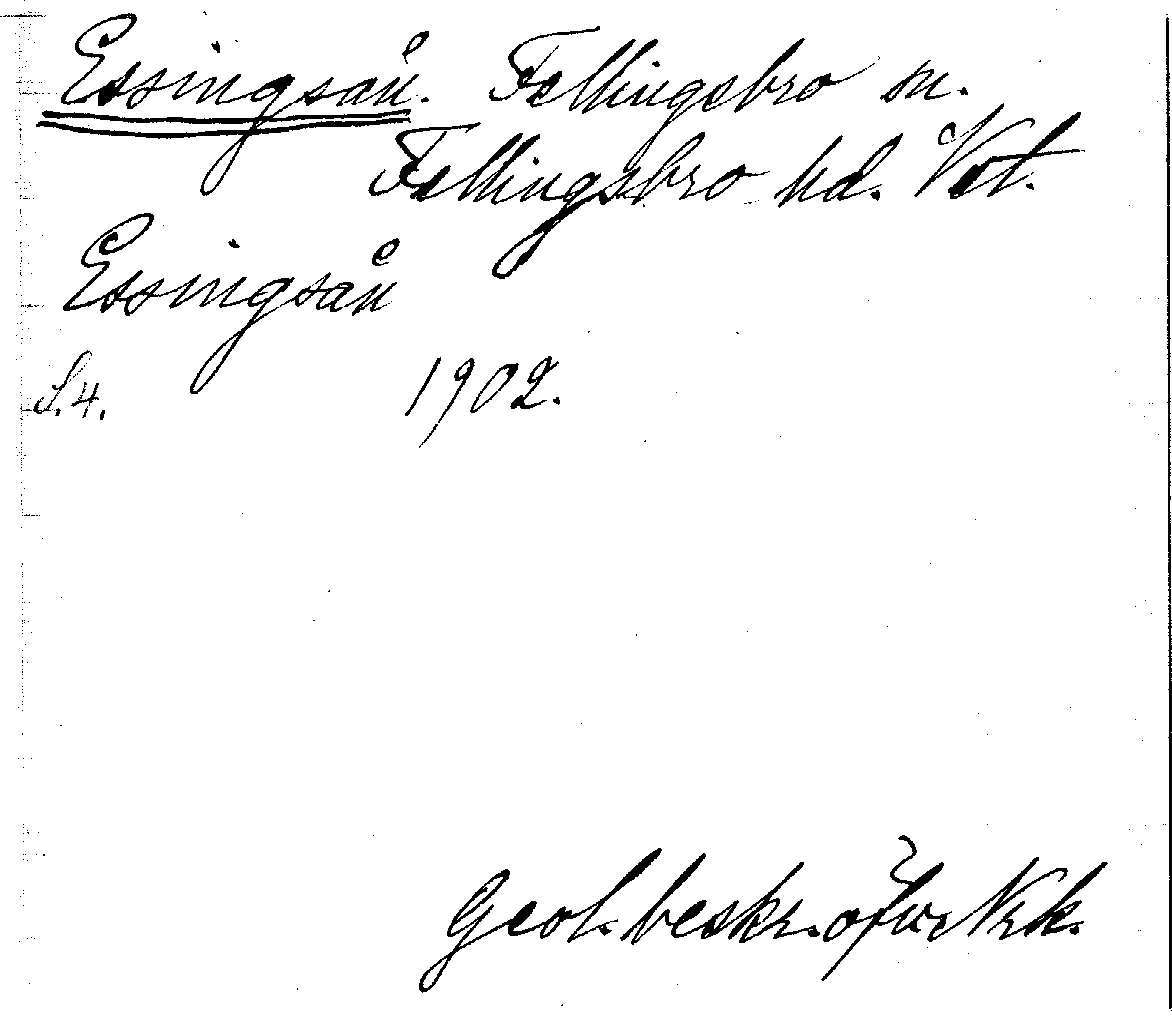 Essingsån. Fellingsbro sn.
Fellingsbro hd. Vstl.
Essingsån
S.4. 1902.
Geol. beskr. öfver Nrk.